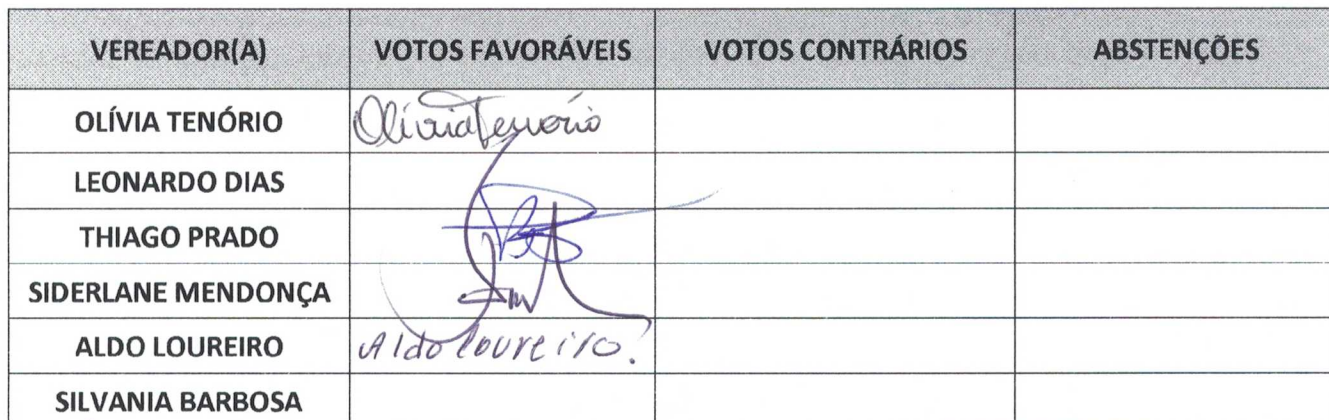 VEREADOR(A) VOTOS FAVORÁVEIS VOTOS CONTRÁRIOS ABSTENÇÕES
OLÍVIA TENÓRIO Olívia Tenório
LEONARDO DIAS
THIAGO PRADO
SIDERLANE MENDONÇA
ALDO LOUREIRO Aldo Loureiro.
SILVANIA BARBOSA